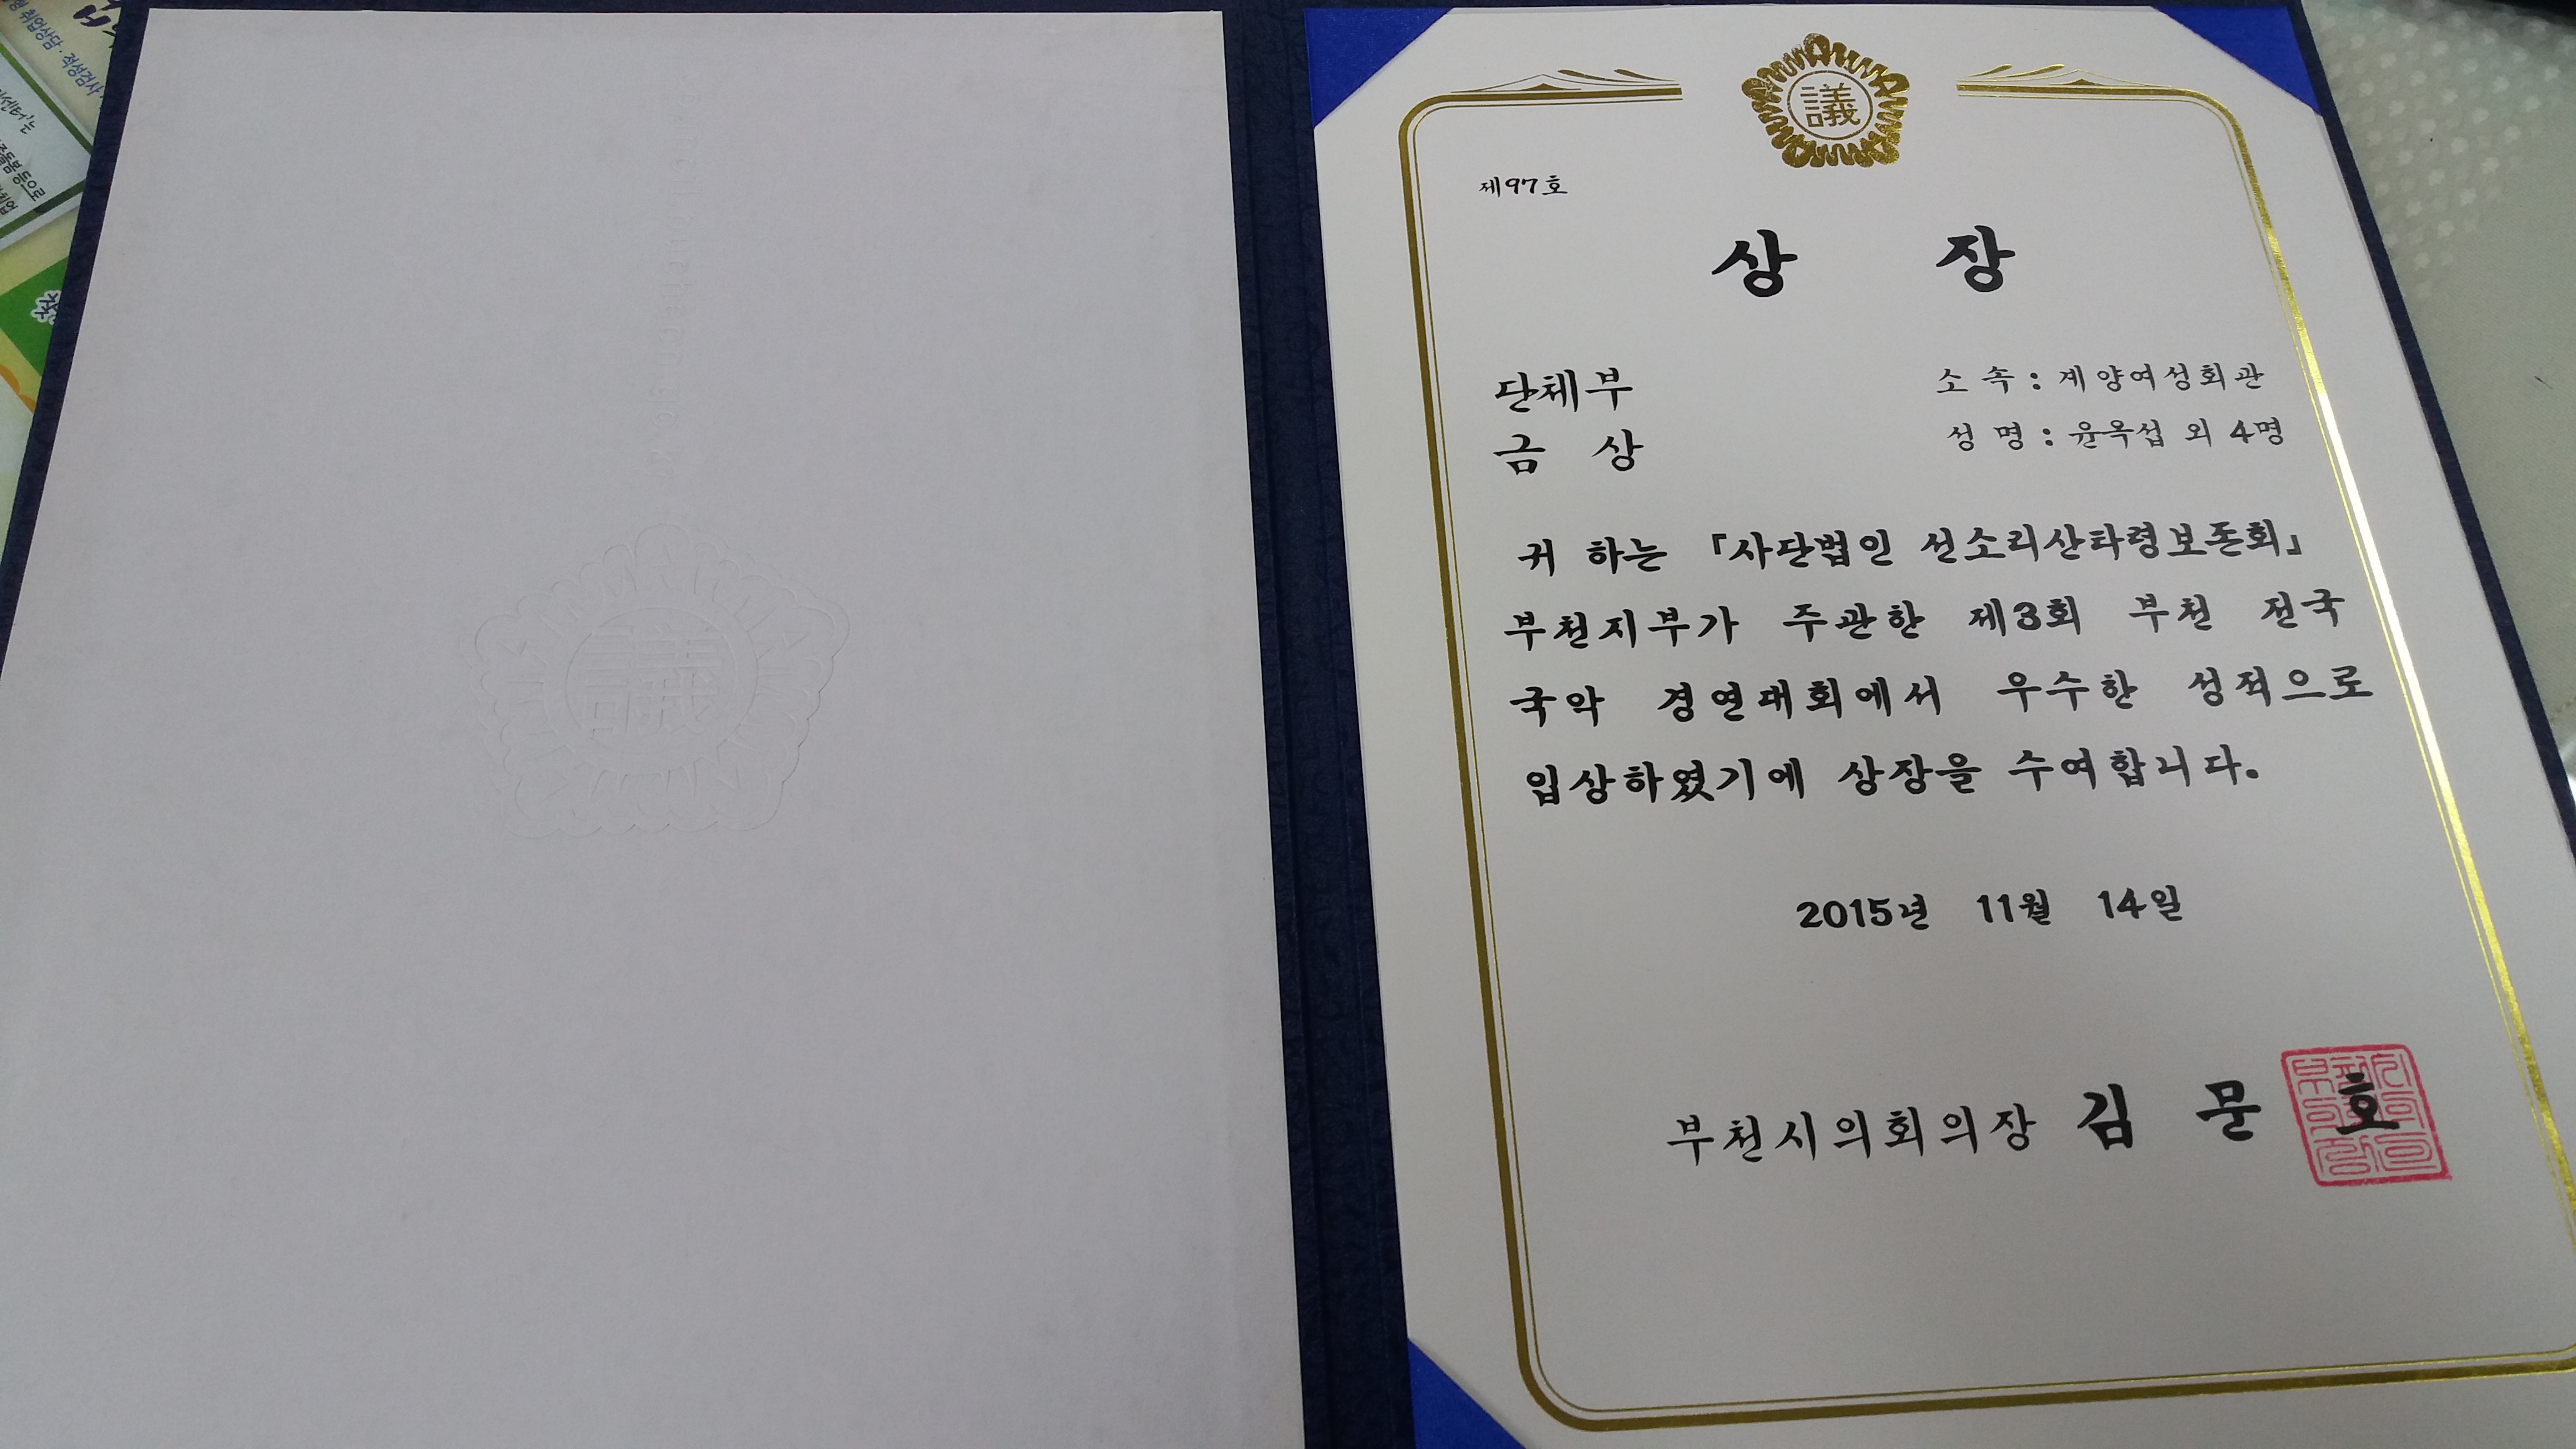 취업상담 · 적성검사
센터는
등으로
취업
議
議
제97호
상 장
단체부
소 속 : 계양여성회관
금 상
성 명 : 윤옥섭 외 4명
귀 하는 「사단법인 선소리산타령보존회」
부천지부가 주관한 제3회 부천 전국
국악 경연대회에서 우수한 성적으로
입상하였기에 상장을 수여합니다.
2015년 11월 14일
부천시의회의장 김 문 호